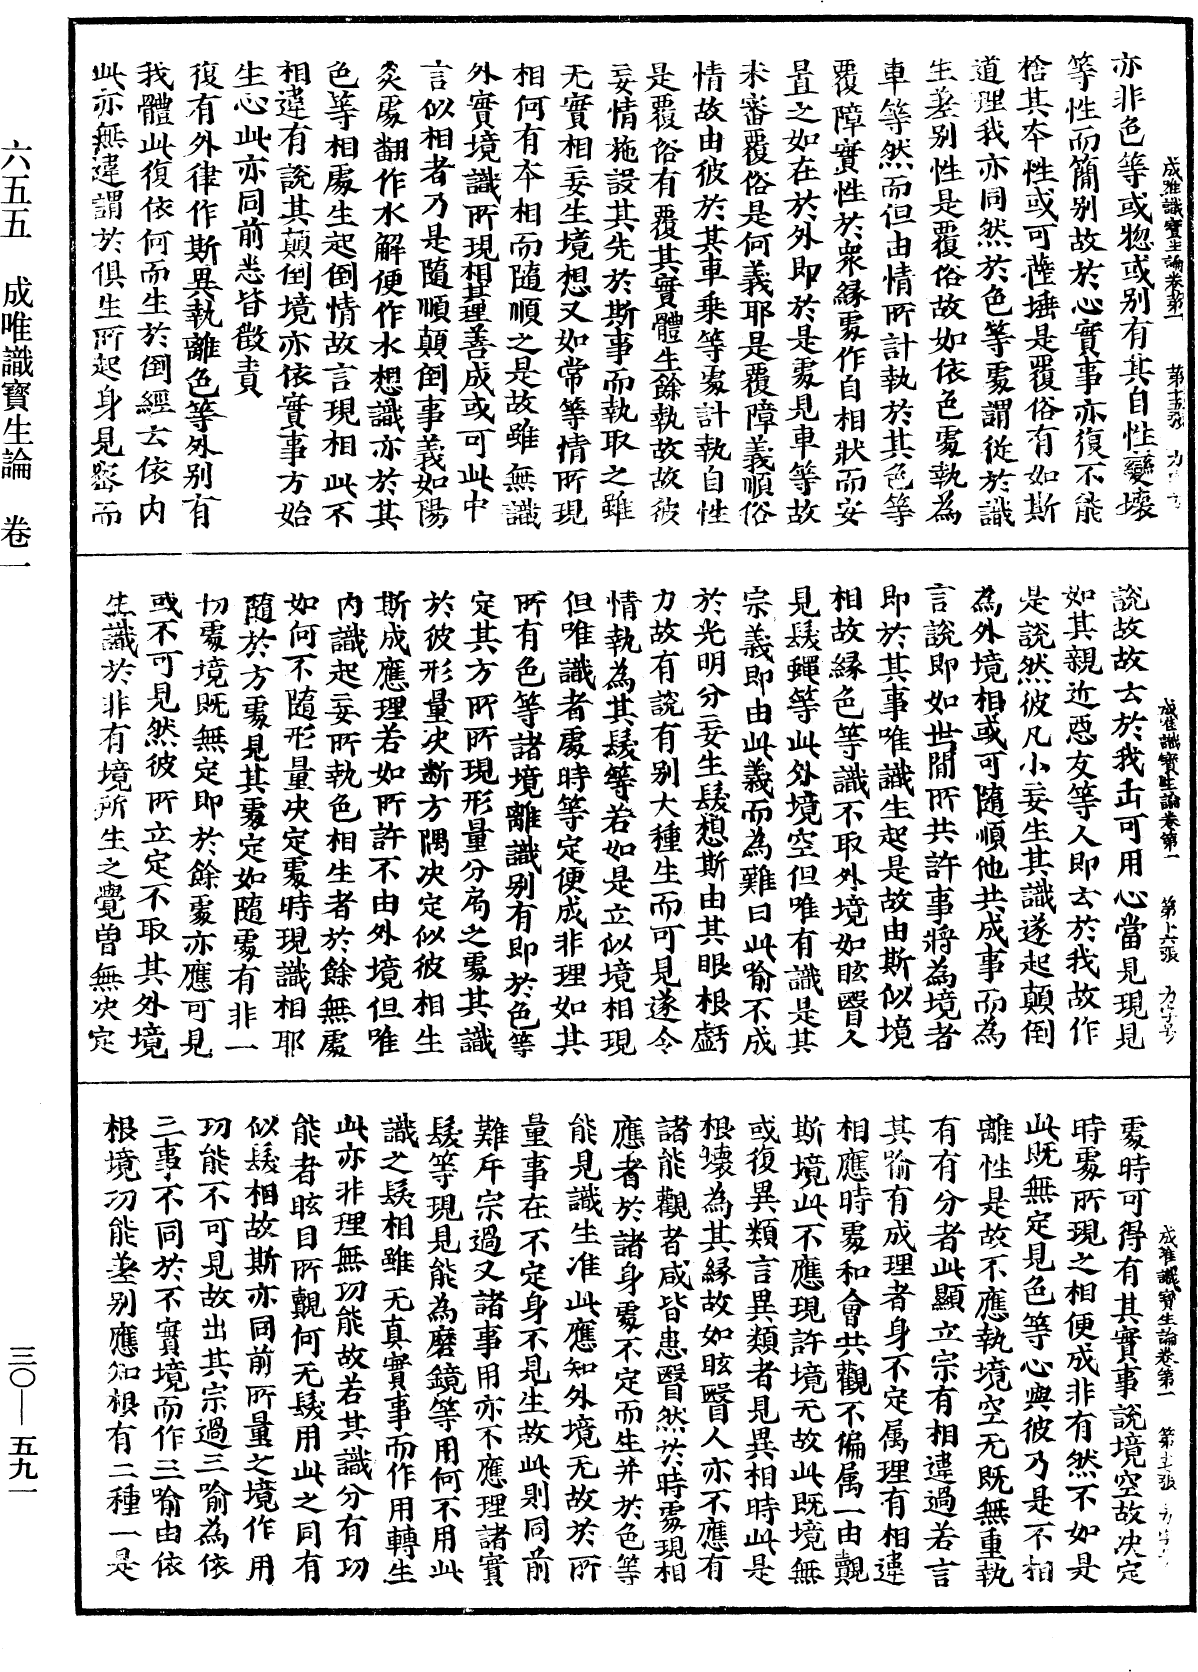 六五五　成唯識寶生論　卷一
三〇—五九一
成唯識寶生論卷第一　第十五張　力字号
亦非色等或惣或别有其自性變壞
等性而簡别故於心實事亦復不能
捨其本性或可薩埵是覆俗有如斯
道理我亦同然於色等處謂從於識
生差别性是覆俗故如依色處執為
車等然而但由情所計執於其色等
覆障實性於衆緣處作自相狀而安
置之如在於外即於是處見車等故
未審覆俗是何義耶是覆障義順俗
情故由彼於其車乘等處計執自性
是覆俗有覆其實體生餘執故故彼
妄情施設其先於斯事而執取之雖
无實相妄生境想又如常等情所現
相何有本相而隨順之是故雖無識
外實境識所現相理善成或可此中
言似相者乃是隨順顛倒事義如陽
炎處翻作水解便作水想識亦於其
色等相處生起倒情故言現相此不
相違有說其顛倒境亦依實事方始
生心此亦同前悉皆徵責
復有外律作斯異執離色等外别有
我體此復依何而生於倒經云依内
此亦無違謂於俱生所起身見密而
成唯識寶生論卷第一　第十六張　力字号
說故故去於我击可用心當見現見
如其親近惡友等人即去於我故作
是說然彼凡小妄生其識遂起顛倒
為外境相或可隨順他共成事而為
言說即如世間所共許事將為境者
即於其事唯識生起是故由斯似境
相故緣色等識不取外境如眩瞖人
見髮蠅等此外境空但唯有識是其
宗義即由此義而為難曰此喻不成
於光明分妄生髮想斯由其眼根虧
力故有說有别大種生而可見遂令
情執為其髮等若如是立似境相現
但唯識者處時等定便成非理如其
所有色等諸境離識别有即於色等
定其方所所現形量分局之處其識
於彼形量決断方隅決定似彼相生
斯成應理若如所許不由外境但唯
内識起妄所執色相生者於餘無處
如何不隨形量決定處時現識相耶
隨於方處見其處定如隨處有非一
切處境既無定即於餘處亦應可見
或不可見然彼所立定不取其外境
生識於非有境所生之覺曾無決定
成唯識寶生論卷第一　第十七張　力字号
處時可得有其實事說境空故決定
時處所現之相便成非有然不如是
此既無定見色等心與彼乃是不相
離性是故不應執境空无既無重執
有有分者此顯立宗有相違過若言
其喻有成理者身不定属理有相違
相應時處和會共觀不偏属一由覩
斯境此不應現許境无故此既境無
或復異類言異類者見異相時此是
根壞為其緣故如眩瞖人亦不應有
諸能觀者咸皆患瞖然於時處現相
應者於諸身處不定而生并於色等
能見識生准此應知外境无故於所
量事在不定身不見生故此則同前
難斥宗過又諸事用亦不應理諸實
髮等現見能為磨鏡等用何不用此
識之髮相雖无真實事而作用轉生
此亦非理無功能故若其識分有功
能者眩目所覩何无髮用此之同有
似髮相故斯亦同前所量之境作用
功能不可見故出其宗過三喻為依
三事不同於不實境而作三喻由依
根境功能差别應知根有二種一是